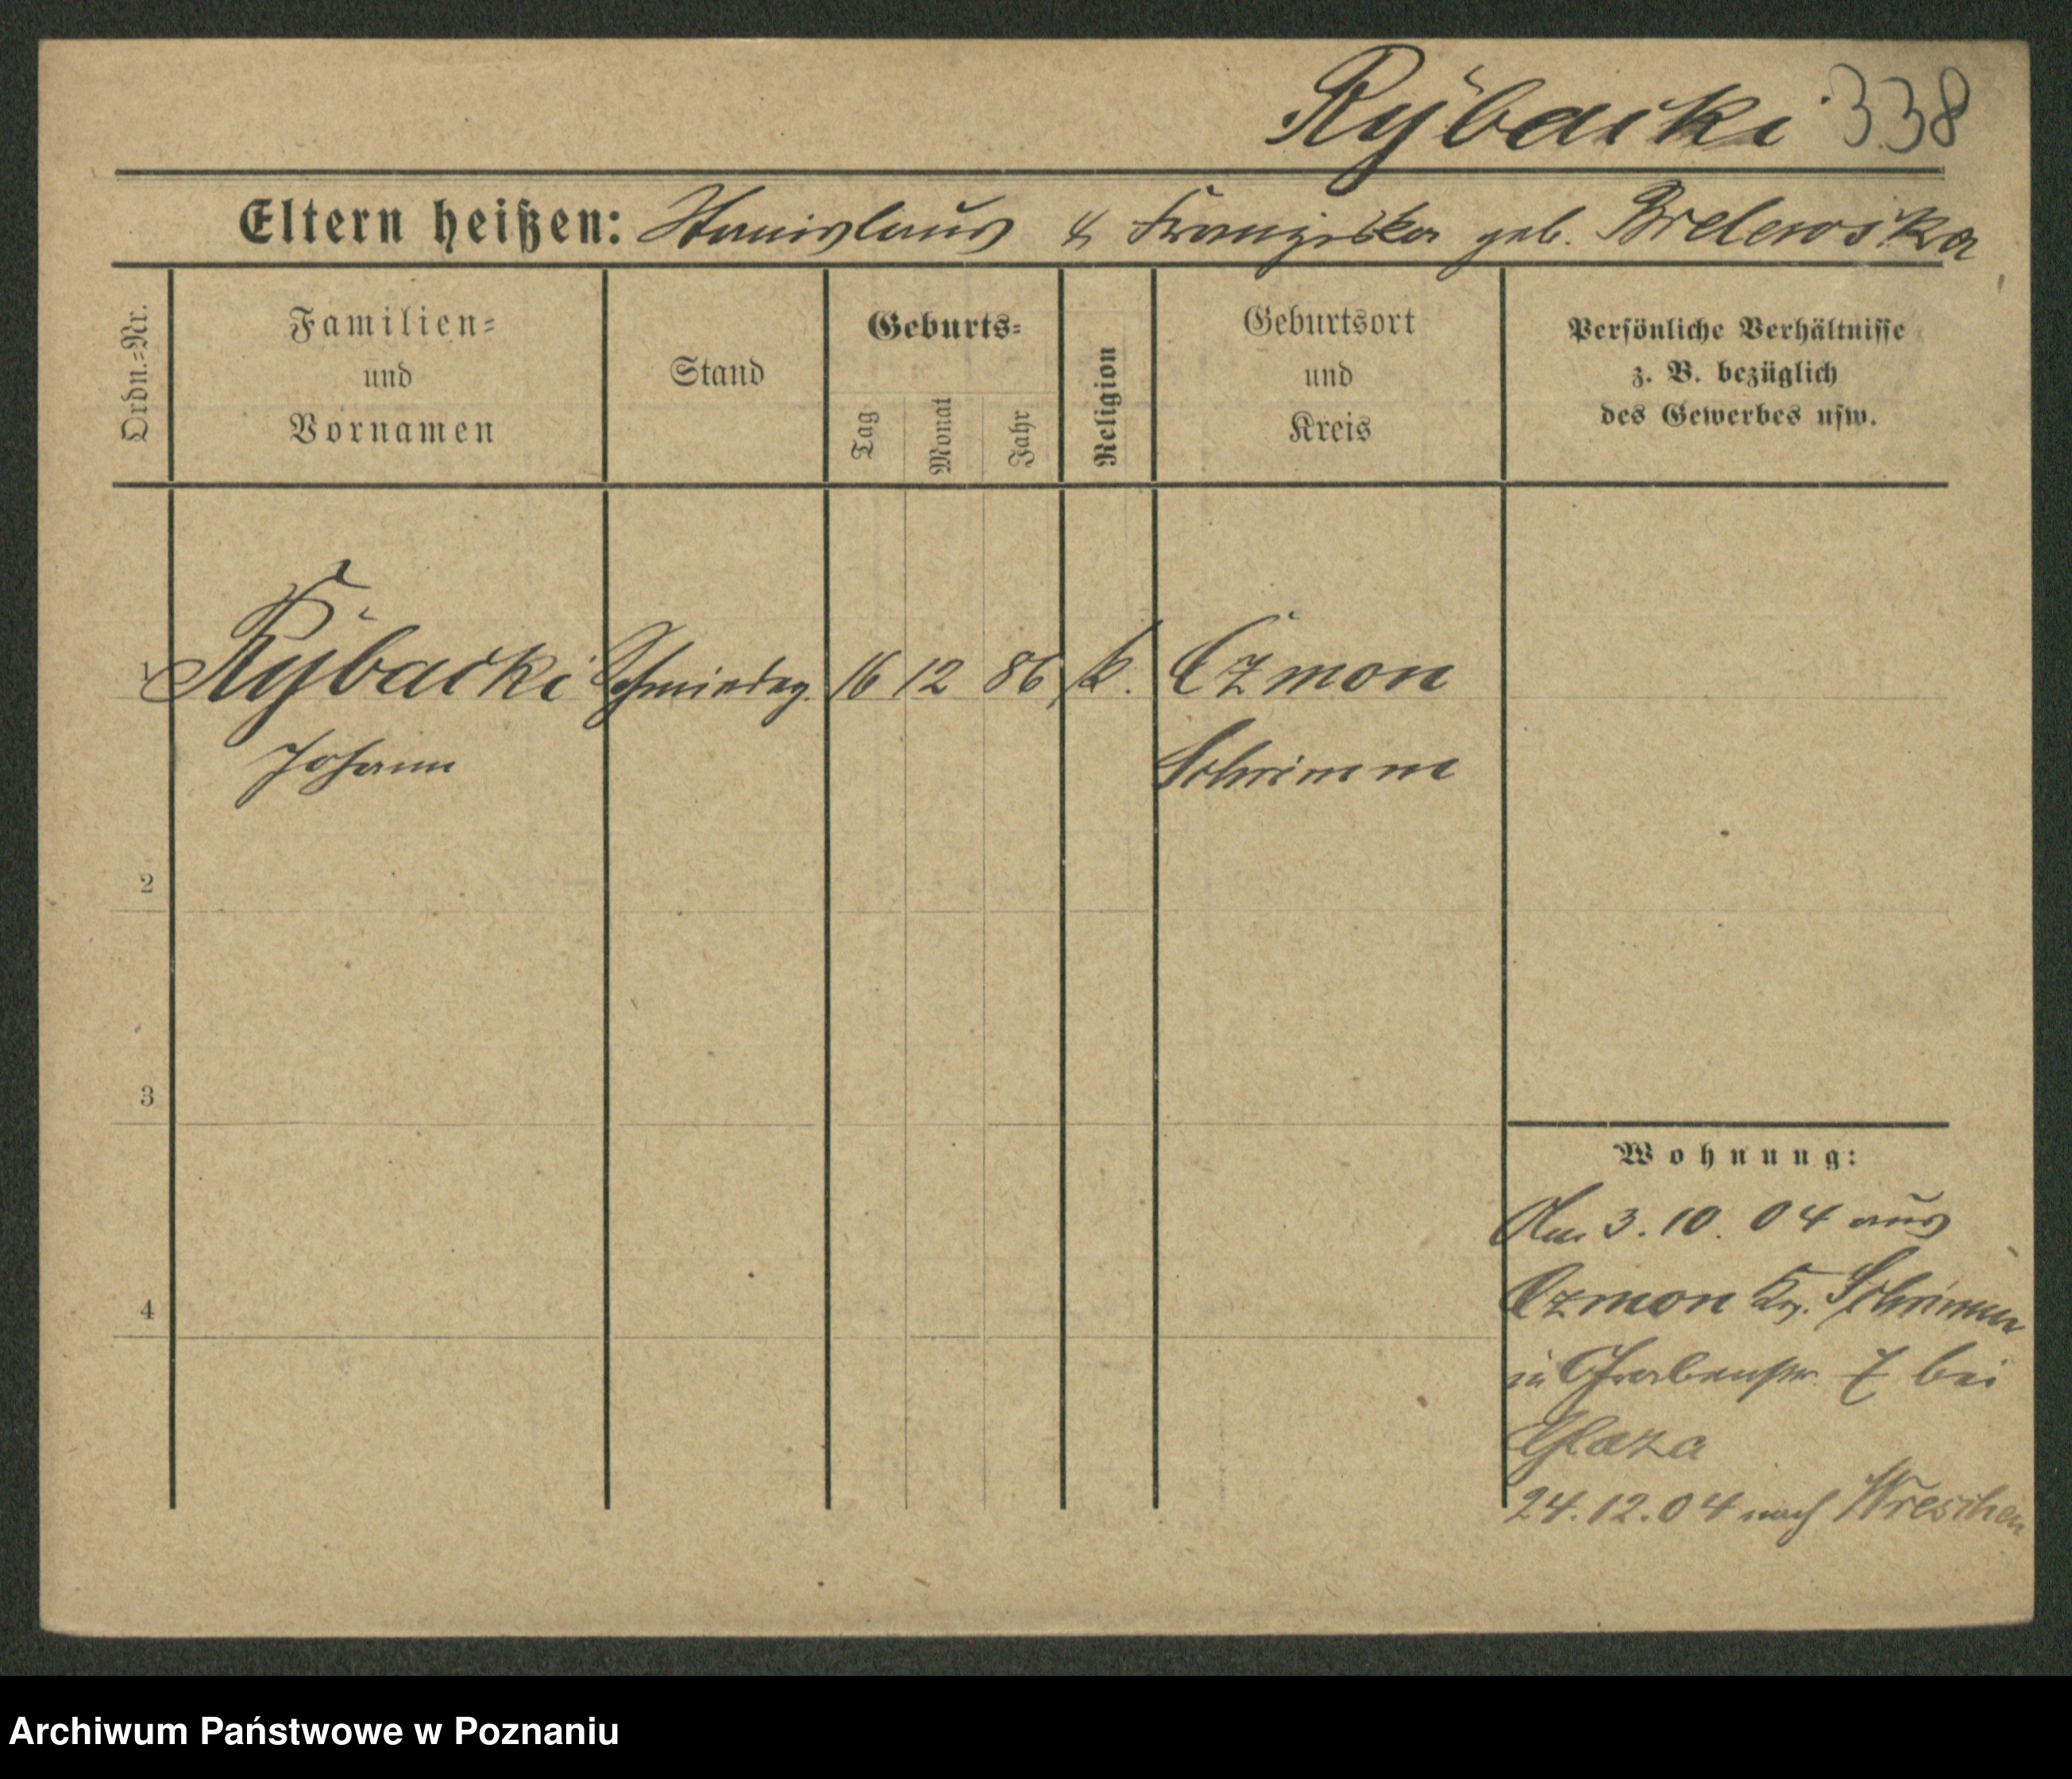 Rybacki 338
Eltern heißen: Stanislaus & Franziska geb. Brelewska
Ordn.-Nr.
Familien-
und
Vornamen
Stand
Geburts-
Tag
Monat
Jahr
Religion
Geburtsort
und
Kreis
Persönliche Verhältnisse
z. B. bezüglich
des Gewerbes usw.
1 Rybacki Schmiedeg. 16 12 86 k. Czmon
Johann Schrimm
2
3
4
Wohnung:
Am 3.10.04 aus
Czmon Krs. Schrimm
in Grabenstr. 7 bei
Glaza
24.12.04 nach Wreschen
Archiwum Państwowe w Poznaniu